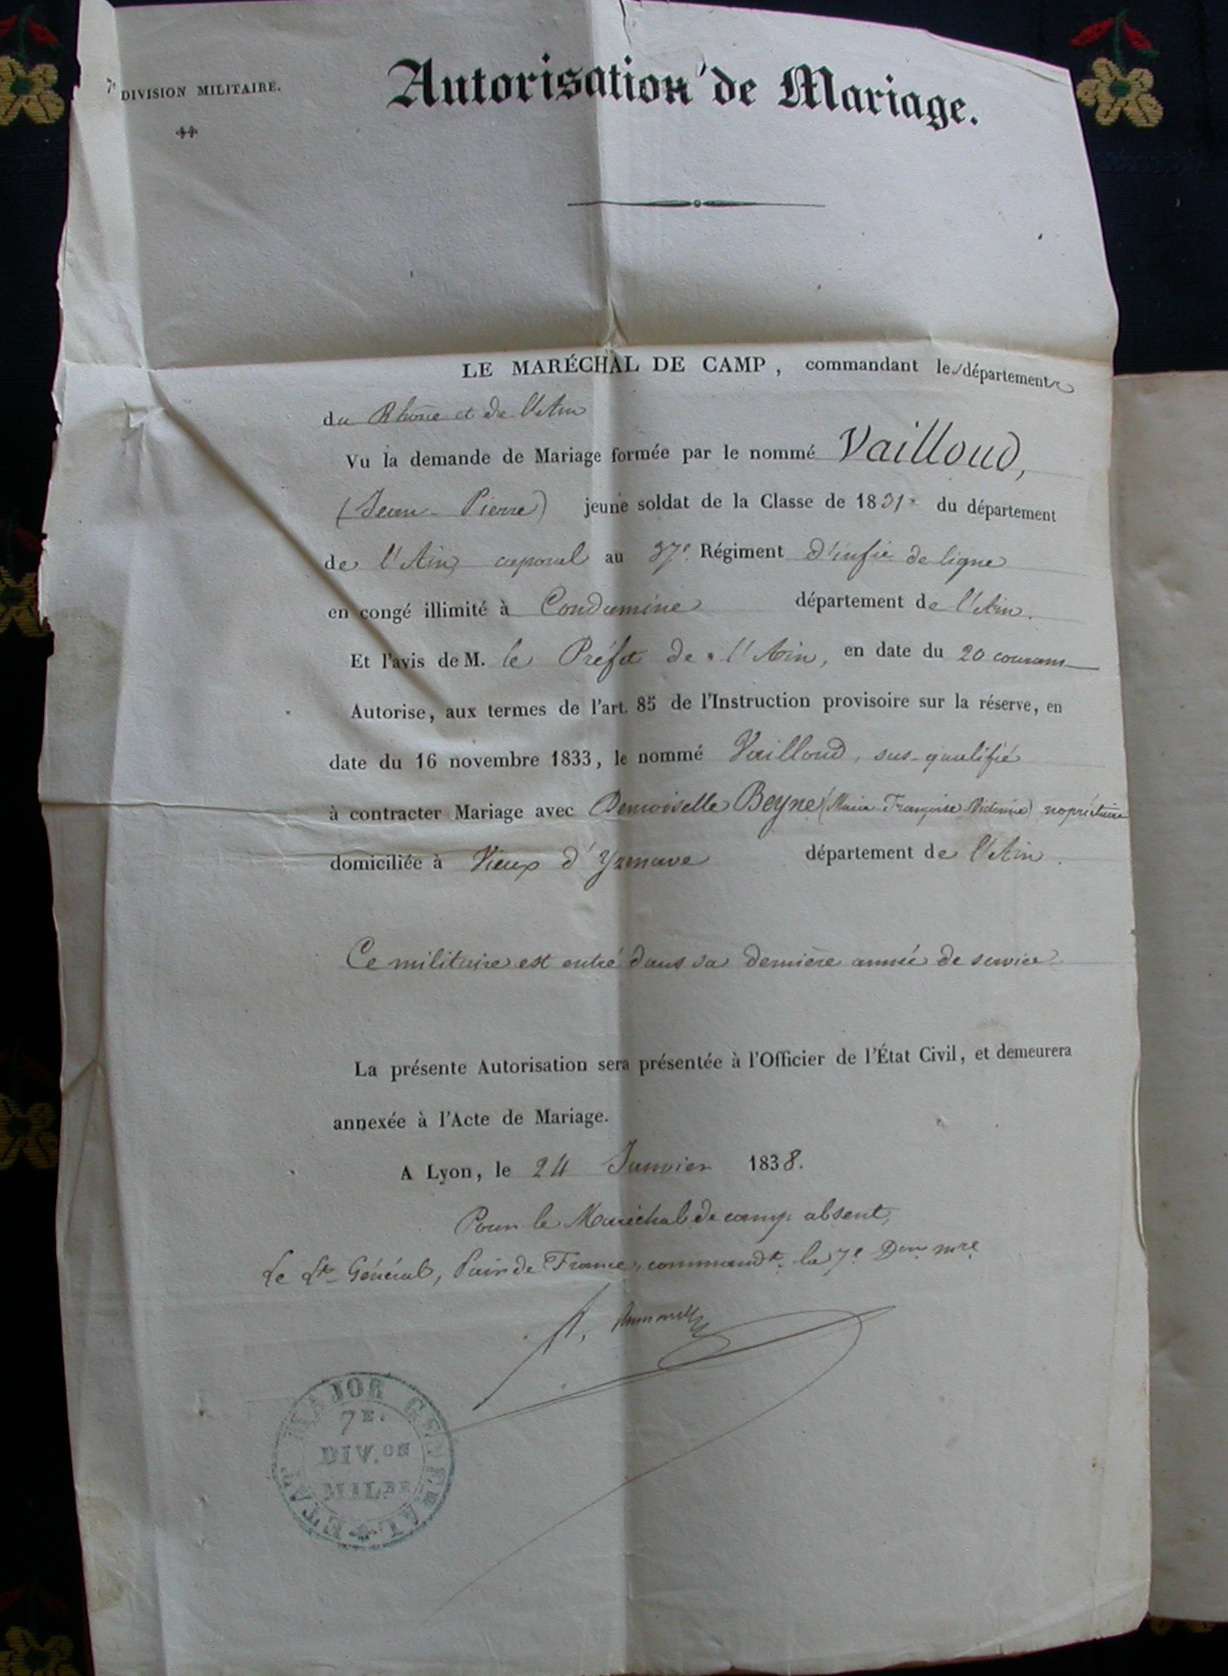 7e DIVISION MILITAIRE.
Autorisation de Mariage.
LE MARÉCHAL DE CAMP, commandant les départements
du Rhône et de l'Ain
Vu la demande de Mariage formée par le nommé Vailloud,
(Jean-Pierre) jeune soldat de la Classe de 1831 du département
de l'Ain, caporal au 37e Régiment d'infie de ligne
en congé illimité à Condamine département de l'Ain.
Et l'avis de M. le Préfet de l'Ain, en date du 20 courant
Autorise, aux termes de l'art. 85 de l'Instruction provisoire sur la réserve, en
date du 16 novembre 1833, le nommé Vailloud, sus-qualifié
à contracter Mariage avec Demoiselle Beyne (Marie Françoise Victorine) propriétaire
domiciliée à Vieux d'Yzenave département de l'Ain.
Ce militaire est entré dans sa dernière année de service.
La présente Autorisation sera présentée à l'Officier de l'État Civil, et demeurera
annexée à l'Acte de Mariage.
A Lyon, le 24 Janvier 1838.
Pour le Maréchal de camp absent,
Le Lt Général, Pair de France, commandt la 7e Don mre
ETAT MAJOR GENERAL
7E.
DIV.ON
MILRE